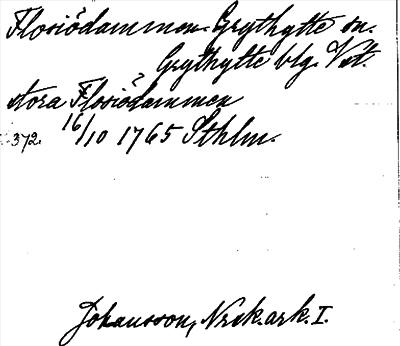 Flosiödammen. Grythytte sn.
Grythytte blg. Vstl.
stora Flosiödammen
372. 16/10 1765 Sthlm.
Johansson, Nrek.ark. I.